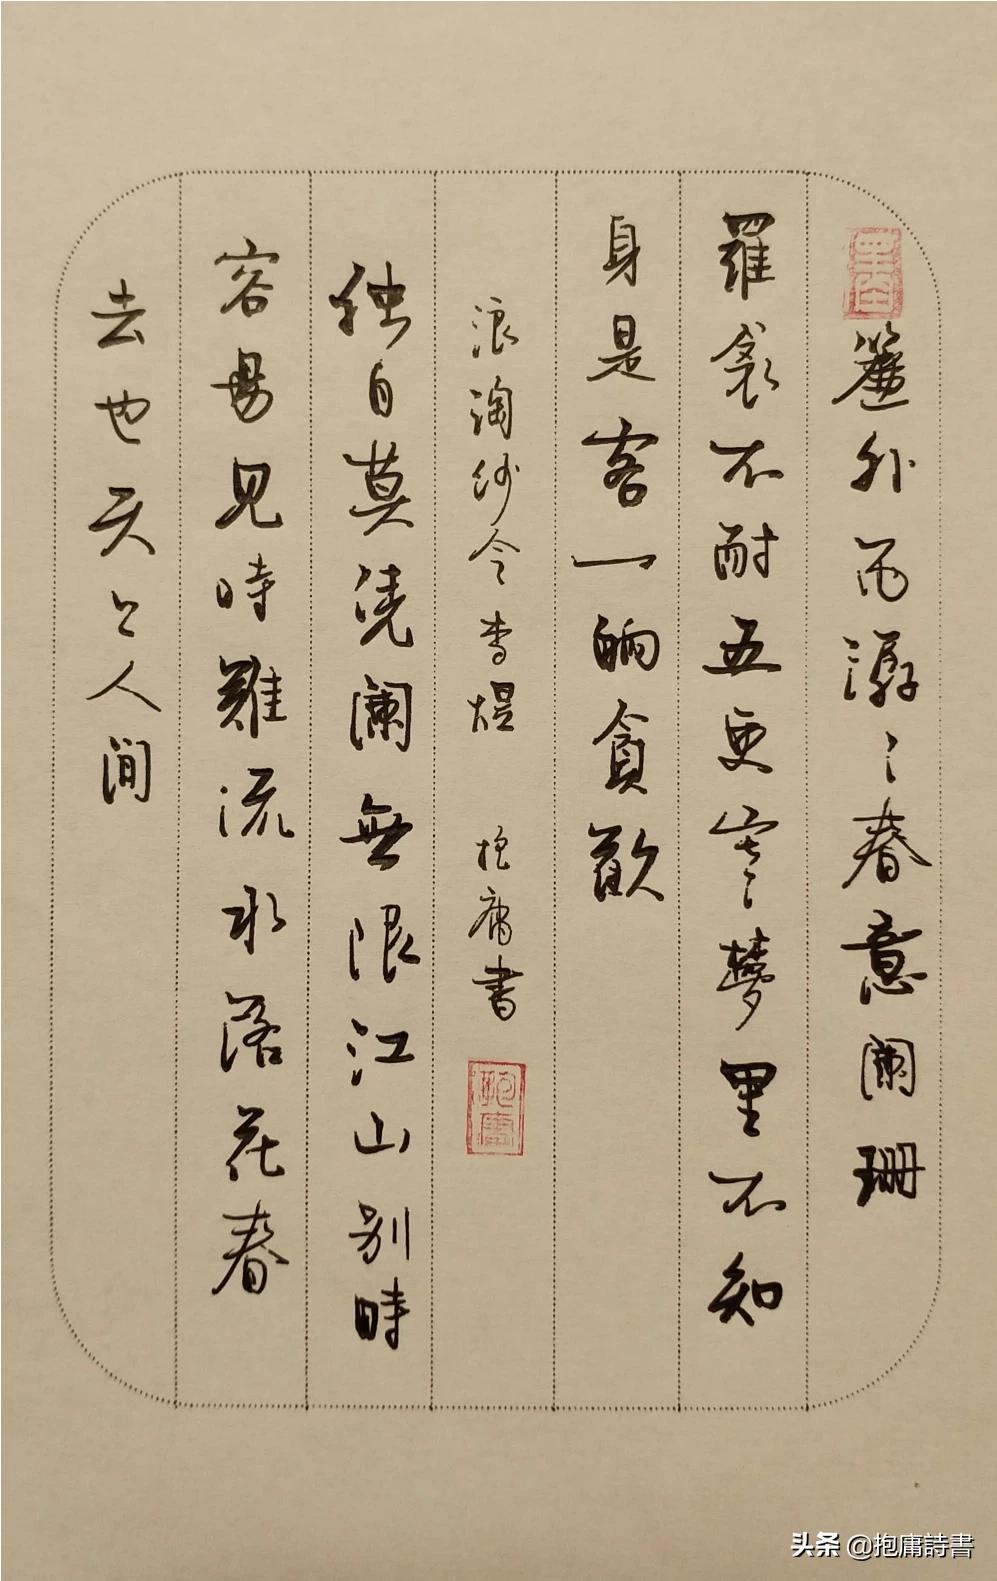 簾外雨潺〻春意阑珊
羅衾不耐五更寒夢里不知
身是客一晌貪歡
浪淘沙令 李煜 抱庸書
抱庸
独自莫凭阑無限江山别時
容易見時難流水落花春
去也天上人间
头条 @抱庸詩書